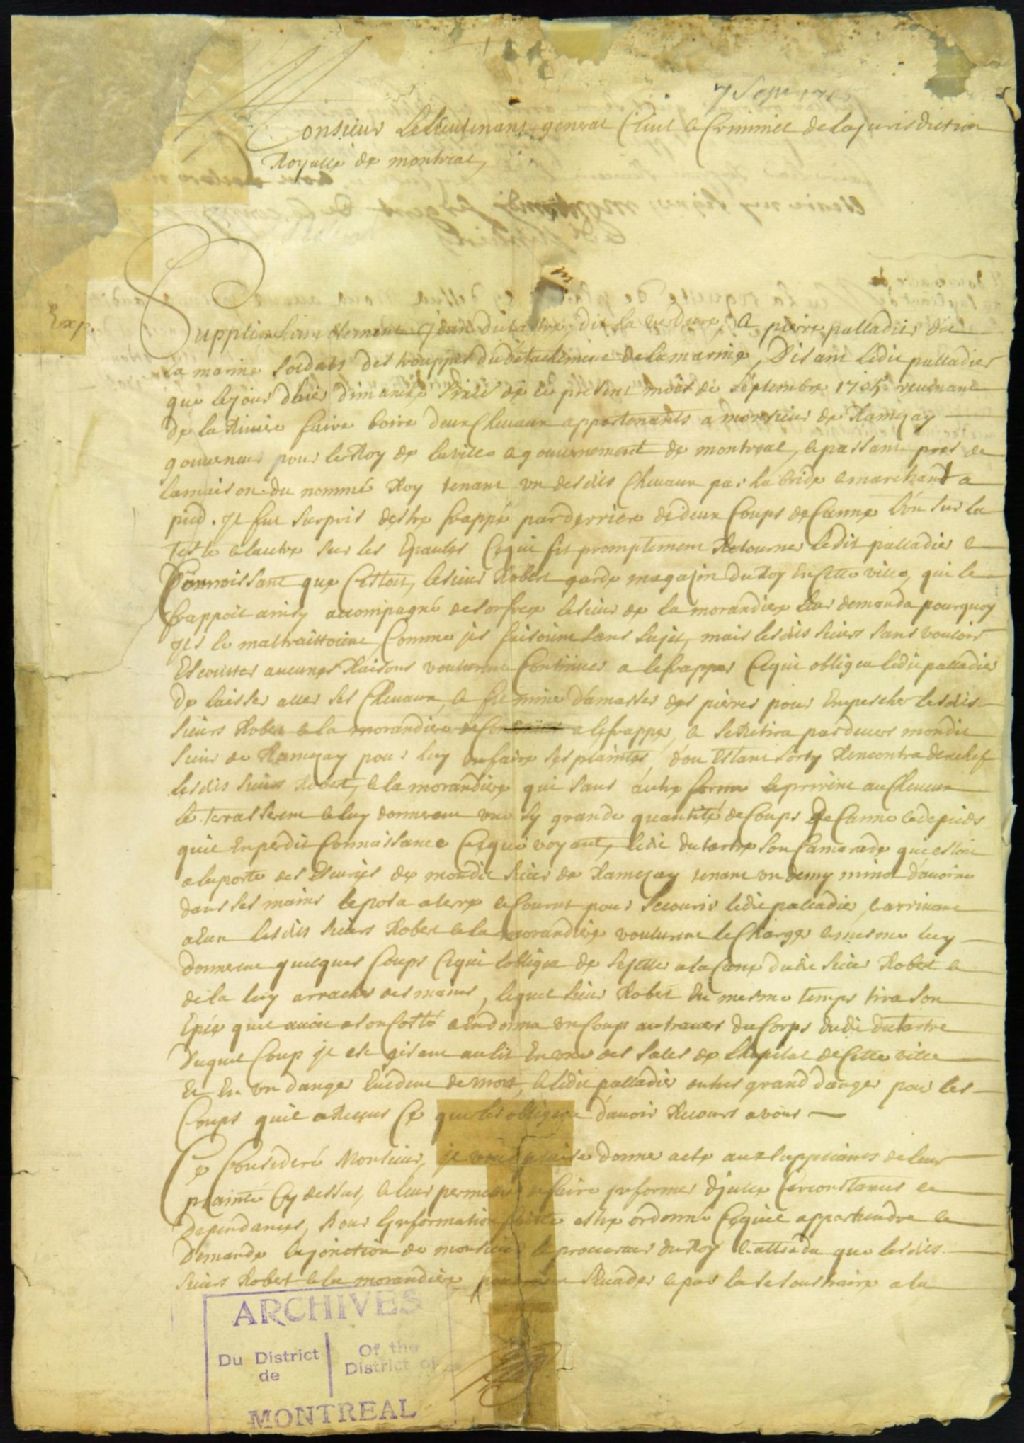 7 Sept 170
Monsieur Le lieutenant general Civil & Criminel de la Jurisdiction
Royalle de montreal,
Exp.
Supplient humblement Jean Dutartre dit la verdure, & pierre palladier dit
la marine soldats des trouppes du détachement de la marine, Disant ledit palladier
que le jour d'hier dimanche six de ce present mois de septembre 1705 revenant
de la Riviere faire boire deux Chevaux appartenants a monsieur de Ramezay
gouverneur pour le Roy de la ville & gouvernement de montreal, & passant pres de
la maison du nommé Roy tenant un desdits Chevaux par la bride & marchant a
pied, il fut surpris destre frappé par derriere de deux Coups de Canne L'un sur la
teste & lautre sur les Epaules Ce qui fit promptement Retourner ledit palladier &
Connoissant que Cestoit, le sieur Robert garde magazin du Roy En Cette ville, qui le
frappoit ainsy accompagné de son frere le sieur de la morandiere leur demanda pourquoy
ils le maltraittoient, Comme ils faisoient sans sujet, mais lesdits sieurs sans vouloir
Escouster aucunes Raisons voulurent Continuer a le frapper Ce qui obligea ledit palladier
de laisser aller ses Chevaux, & fit mine d'amasser des pierres pour Empescher lesdits
sieurs Robert & la morandiere de a le frapper, & se Retira par devers mondit
sieur de Ramezay pour luy en faire ses plaintes, d'ou Estant sorty Rencontra derechef
lesdits sieurs Robert, & la morandiere qui sans autre forme le prirent au Cheveux
le terasserent & luy donnerent une sy grande quantité de Coups de Canne & de pieds
quil En perdit Connaissance Ce que voyant, ledit dutartre son Camarade qui estoit
a la porte des Escuries de mondit sieur de Ramezay tenant un demy minot d'avoine
dans ses mains le posa a terre & Courut pour secourir ledit palladier, & arrivant
a eux lesdits sieurs Robert & la morandiere voulurent le Charger & mesme luy
donnerent quelques Coups Ce qui l'obligea de se jetter a la Canne dudit sieur Robert &
de la luy arracher des mains, lequel sieur Robert En mesme temps tira son
Epée quil avoit a son Costé & en donna un Coup au travers du Corps dudit dutartre
Duquel Coup il est gisant au lit En une des sales de l'hopital de Cette ville
Et En un danger Evident de mort, & ledit palladier en tres grand danger pour les
Coups quil a Reçus Ce qui les oblige d'avoir Recours a vous
Ce Consideré Monsieur, il vous plaise donner acte aux supplians de leur
plainte Cy dessus, & leur permettre en faire informer d'icelle Circonstances &
dependances, & sur L'information faitte estre ordonné Ce quil appartiendra &
Demande la jonction de monsieur le procureur du Roy & attendu que lesdits
sieurs Robert & la morandiere Evader & par la se soustraire a la
ARCHIVES
Du District
de
Of the
District of
MONTREAL